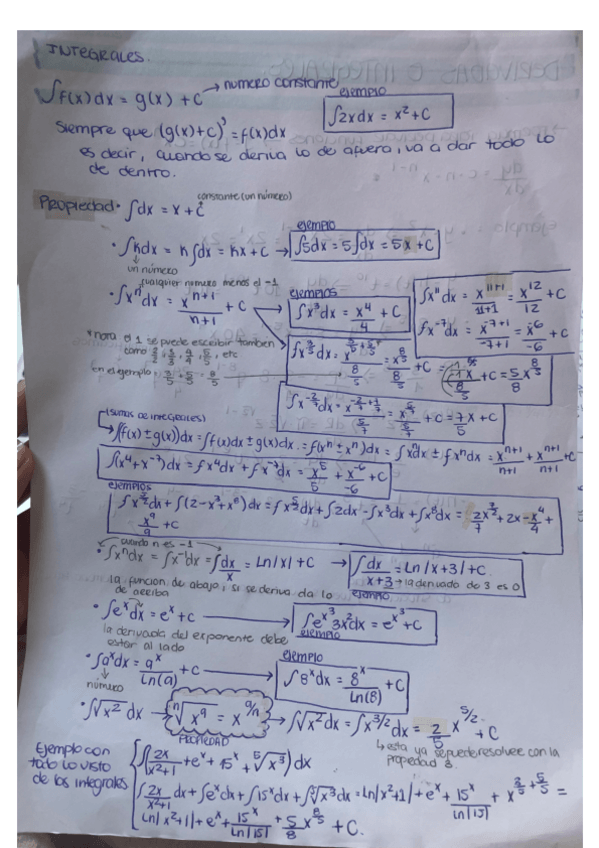 INTEGRALES.
∫f(x)dx = g(x) + C → numero constante
ejemplo
∫2xdx = x² + C
Siempre que (g(x)+C)' = f(x)dx
es decir, cuando se deriva lo de afuera, va a dar todo lo
de dentro.
Propiedad • ∫dx = x + C
constante (un número)
ejemplo
• ∫kdx = k∫dx = kx + C → ∫5dx = 5∫dx = 5x + C
un número
cualquier numero menos el -1
• ∫xⁿdx = xⁿ⁺¹/n+1 + C
ejemplos
∫x³dx = x⁴/4 + C
∫x¹¹dx = x¹¹⁺¹/11+1 = x¹²/12 + C
∫x⁻⁷dx = x⁻⁷⁺¹/-7+1 = x⁻⁶/-6 + C
*nota el 1 se puede escribir tambien
como 2/2, 3/3, 4/4, 5/5, etc
En el ejemplo: 3/5 + 5/5 = 8/5
∫x^3/5 dx = x^3/5+5/5 / 8/5 = x^8/5 / 8/5 + C = + C = 5/8 x^8/5
∫x^-2/7 dx = x^-2/7+7/7 / 5/7 = x^5/7 / 5/7 + C = 7/5 x + C
(sumas de integrales)
∫(f(x) ± g(x))dx = ∫f(x)dx ± g(x)dx. = f(xⁿ ± xⁿ)dx = ∫xⁿdx ± ∫xⁿdx = xⁿ⁺¹/n+1 + xⁿ⁺¹/n+1 + C
∫(x⁴ + x⁻⁷)dx = ∫x⁴dx + ∫x⁻⁷dx = x⁵/5 + x⁻⁶/-6 + C
ejemplos
∫x^5/2 dx + ∫(2 - x³ + x⁸)dx = ∫x^5/2 dx + ∫2dx - ∫x³dx + ∫x⁸dx = 2/7 x^7/2 + 2x - x⁴/4 +
x⁹/9 + C
cuando n es -1
• ∫xⁿdx = ∫x⁻¹dx = ∫dx/x = Ln|x| + C → ∫dx/x+3 = Ln|x+3| + C.
→ la derivada de 3 es 0
la funcion de abajo, si se deriva da lo
de arriba
ejemplo
• ∫eˣdx = eˣ + C → ∫e^x³ 3x²dx = e^x³ + C
la derivada del exponente debe
estar al lado
ejemplo
• ∫aˣdx = aˣ/Ln(a) + C →
número
ejemplo
∫8ˣdx = 8ˣ/Ln(8) + C
• ∫√x² dx → ⁿ√x^a = x^a/n → ∫√x² dx = ∫x^3/2 dx = 2/5 x^5/2 + C
PROPIEDAD
↳ esta ya se puede resolver con la
propiedad 3.
Ejemplo con
todo lo visto
de las integrales
∫(2x/x²+1 + eˣ + 15ˣ + ⁵√x³)dx
∫2x/x²+1 dx + ∫eˣdx + ∫15ˣdx + ∫⁵√x³dx = ln|x²+1| + eˣ + 15ˣ/ln|15| + x^3/5+5/5 =
Ln|x²+1| + eˣ + 15ˣ/ln|15| + 5/8 x^8/5 + C.